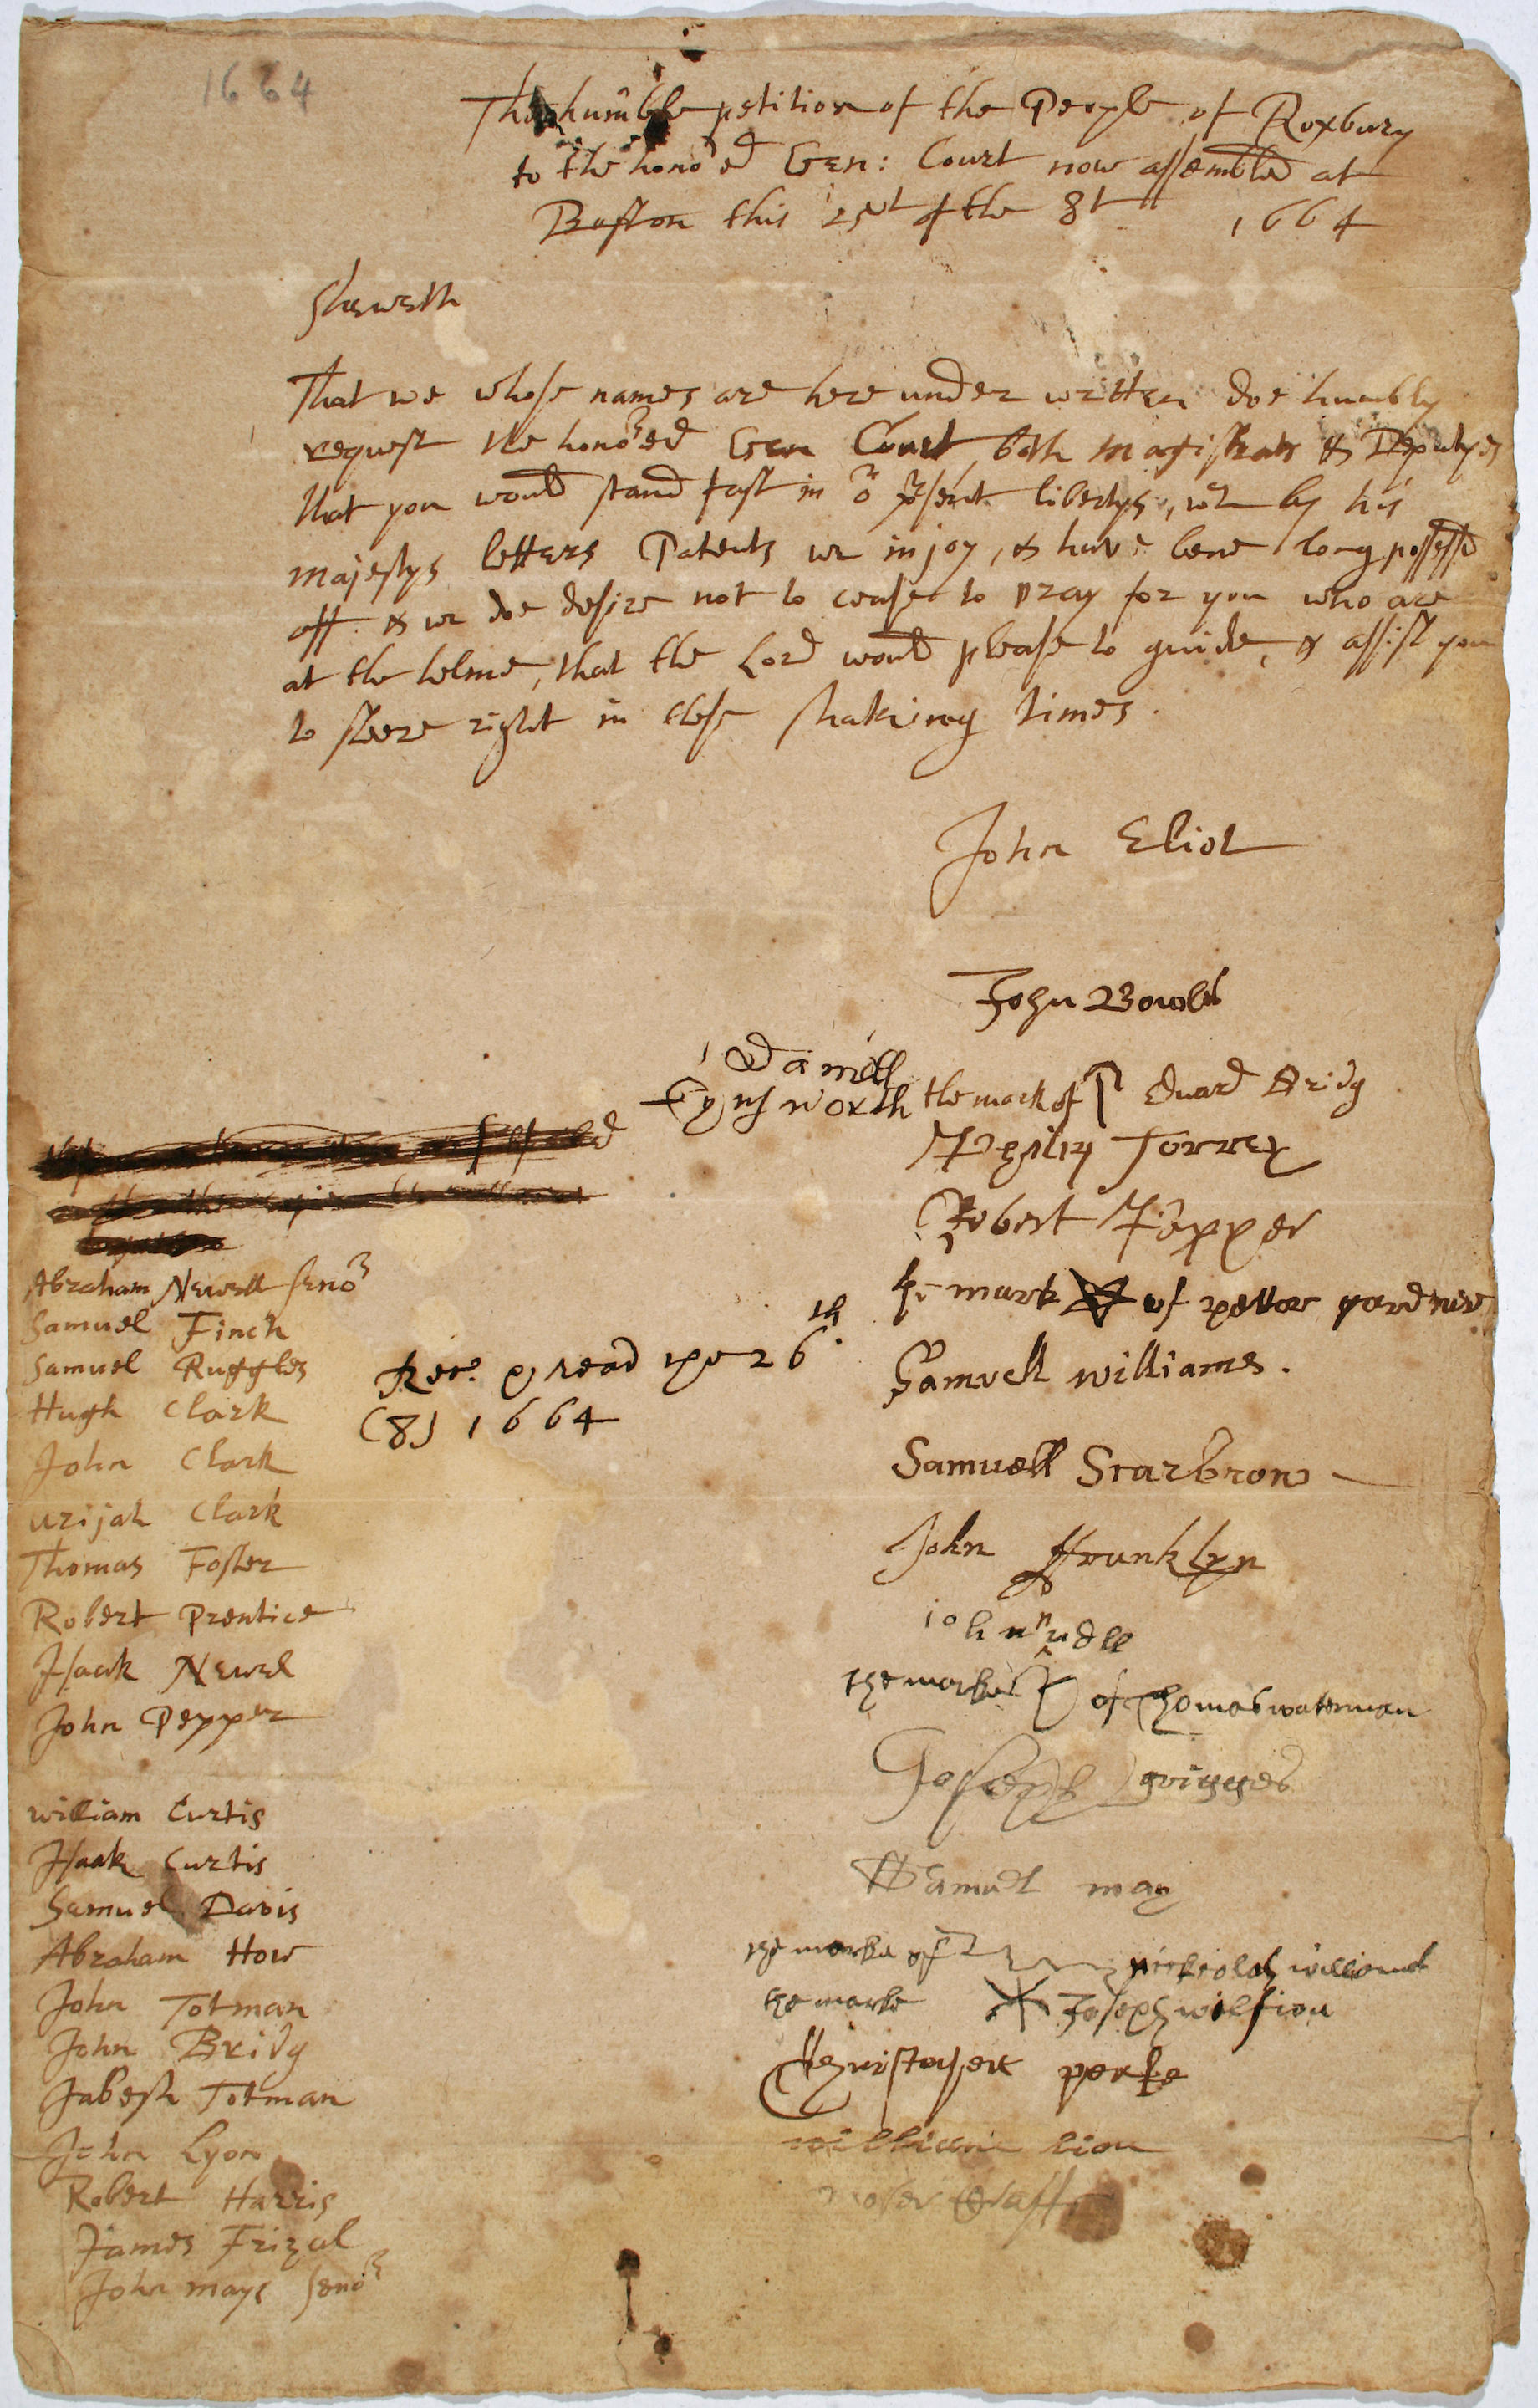 1664
The humble petition of the People of Roxbury
to the hono'ed Gen: Court now assembled at
Boston this 25t of the 8t 1664
Sheweth
That we whose names are here under written doe humbly
request the hono'ed Gen Court, both magistrats & Deputyes
that you would stand fast in or prsent libertys, wch by his
majestys letters Patents we injoy, & have bene long possessd
off. & we doe desire not to cease to pray for you who are
at the helme, that the Lord would please to guide, & assist you
to steere right in these shaking times.
John Eliot
John Bowles
Daniell
Aynsworth
the mark of P Edward Bridg
Philip Torrey
Robert Pepper
mark of petter gardner
Samuell williams.
Samuell Scarbrow
John ffranklyn
iohn nuell
the marke of Thomas waterman
Joseph grigges
Samuel may
the marke of williams
the marke Joseph
Christopher peake
william lion
Abraham Newell senor
Samuel Finch
Samuel Ruggles
Hugh Clark
John Clark
urijah Clark
Thomas Foster
Robert Prentice
Isaak Newel
John Pepper
william Curtis
Isaak Curtis
Samuel Davis
Abraham How
John Totman
John Bridg
Jabesh Totman
John Lyon
Robert Harris
James Frizal
John mays senor
Rec. & read ye 26th.
(8) 1664